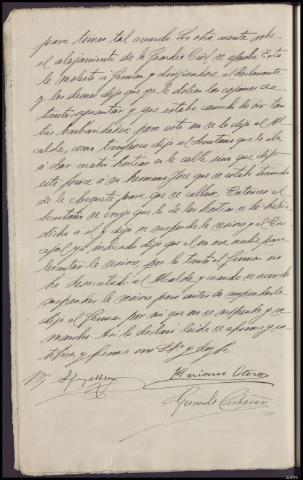 para tomar tal acuerdo. En otra sesión sobre
el alojamiento de la Guardia Civil se opuso. Esto
le molestó a Germán y dirigiéndose al declarante
y los demás dijo que ya le dolían los cojones de
tanto aguantar y que estaba cansado de oir tan
tas barbaridades pero esto no se lo dijo al Al
calde, como tampoco dijo al Secretario que le iba
a dar cuatro hostias en la calle sino que dijo
esto fuera a su hermano José que se estaba tirando
de la chaqueta para que se callara. Entonces el
Secretario se creyó que lo de las hostias se lo había
dicho a él y dijo se suspende la sesión y el Con
cejal ya indicado dijo que él no era nadie para
levantar la sesión, por lo tanto el Germán no
ha desacatado al Alcalde y cuando se acordó
suspender la sesión pero antes de suspenderla
dijo el Germán por mi que no se suspenda y se
marchó. Así lo declaró leído se afirma y ra
tifica y firma con S.Sª y doy fe
Mariano Otero
Gerardo